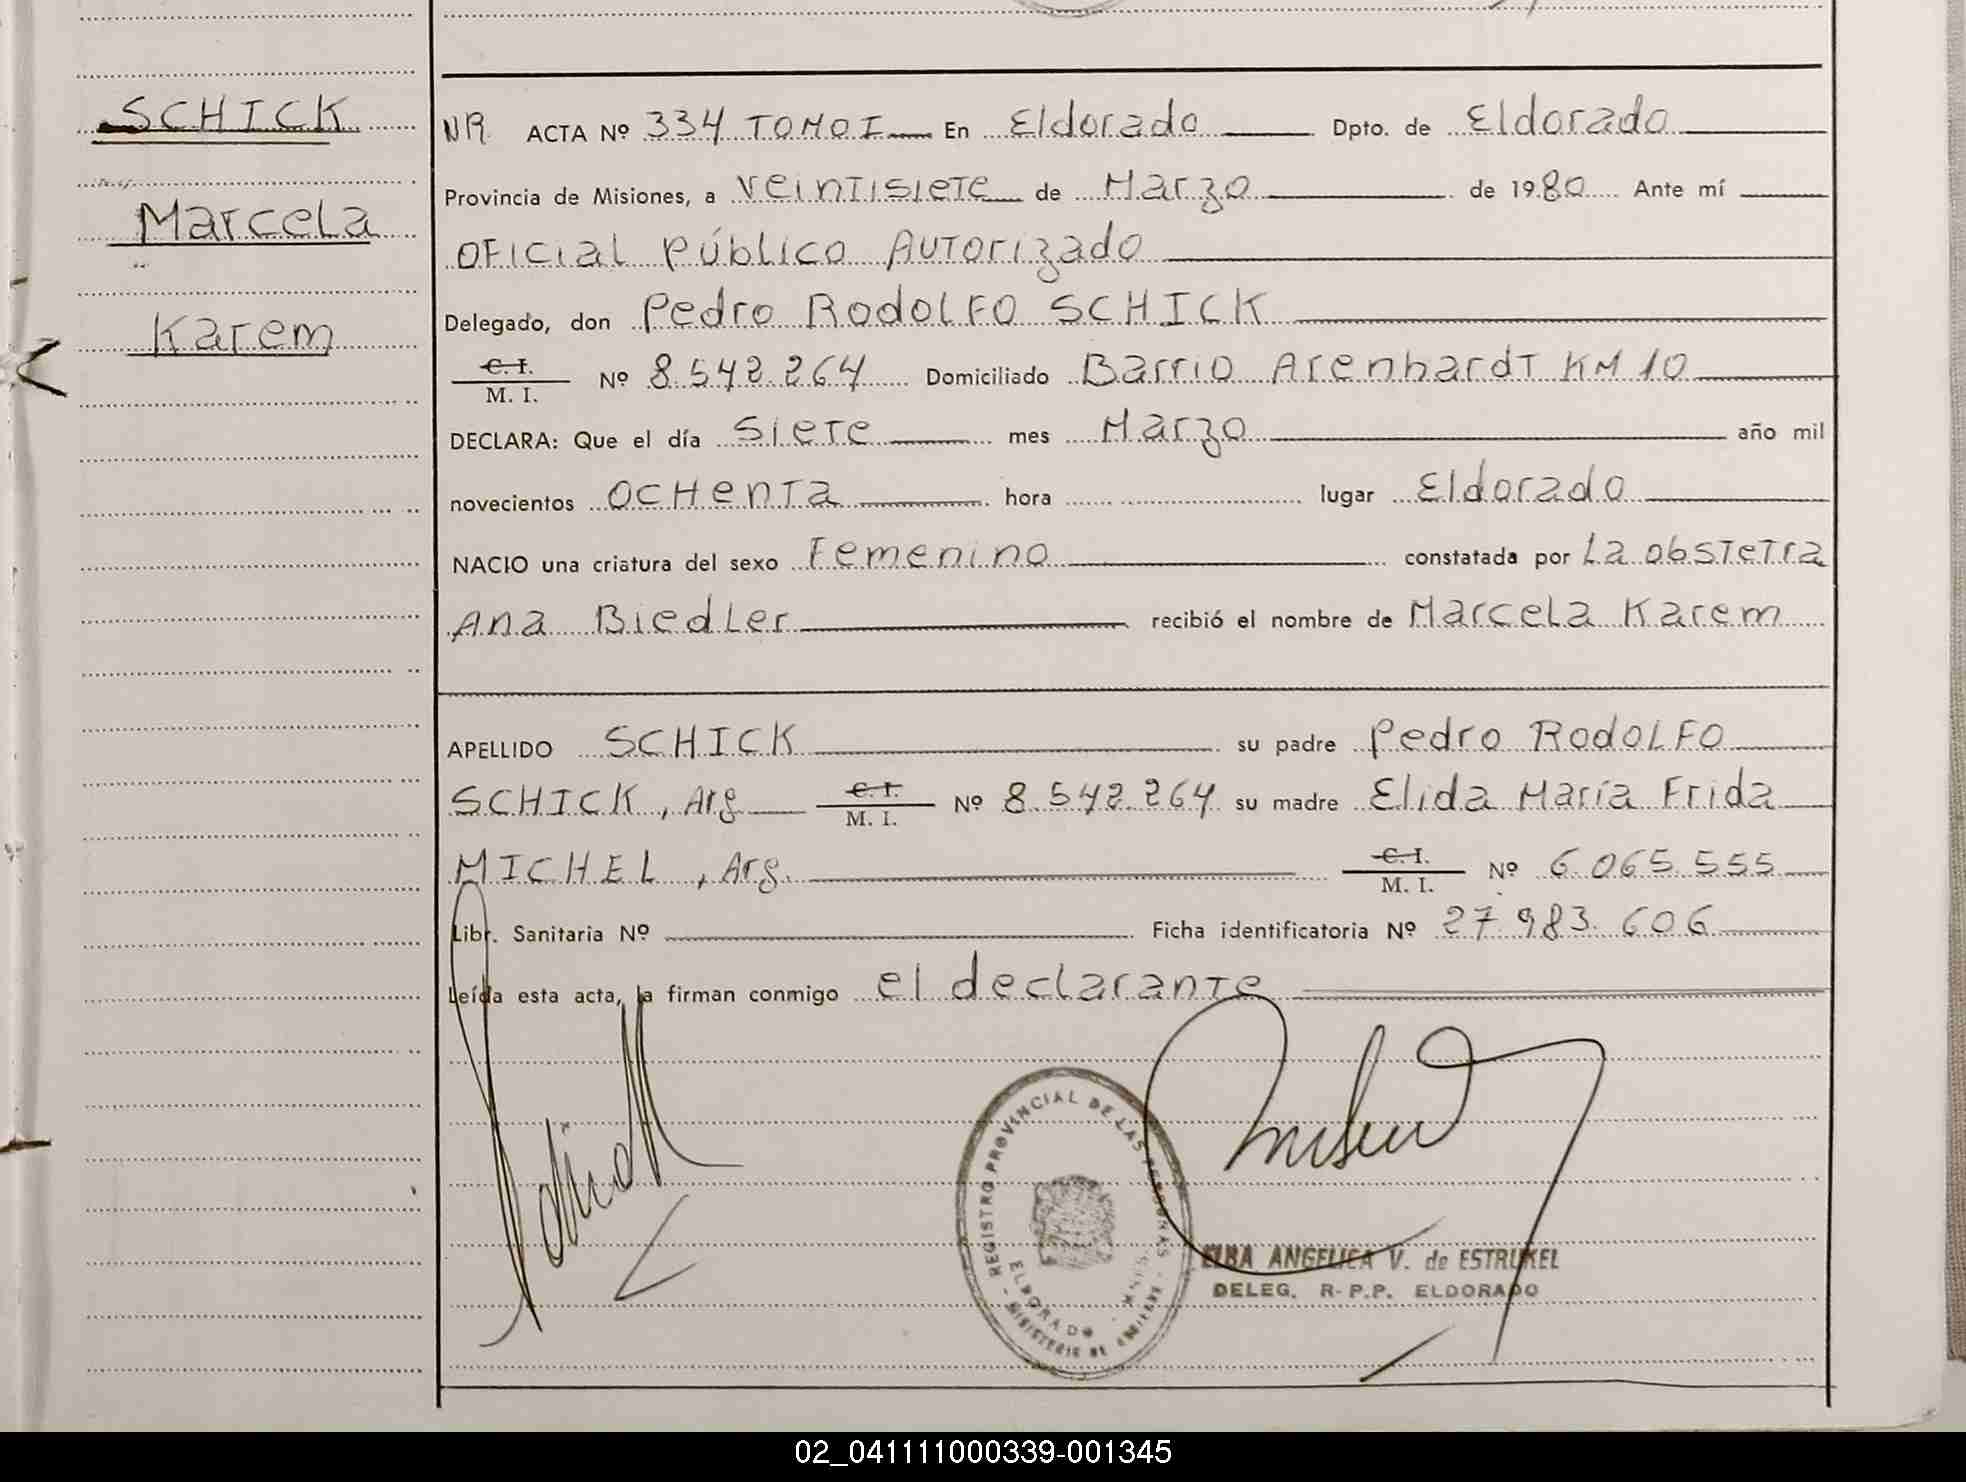 SCHICK
Marcela
Karem
NR ACTA Nº 334 TOMO I En Eldorado Dpto. de Eldorado
Provincia de Misiones, a veintisiete de Marzo de 1980 Ante mí
Oficial Público Autorizado
Delegado, don Pedro Rodolfo SCHICK
C. I.
M. I. Nº 8.542.264 Domiciliado Barrio Arenhardt KM 10
DECLARA: Que el día siete mes Marzo año mil
novecientos ochenta hora lugar Eldorado
NACIO una criatura del sexo Femenino constatada por La obstetra
Ana Biedler recibió el nombre de Marcela Karem
APELLIDO SCHICK su padre Pedro Rodolfo
SCHICK, Arg C. I. M. I. Nº 8.542.264 su madre Elida María Frida
MICHEL, Arg. C. I. M. I. Nº 6.065.555
Libr. Sanitaria Nº Ficha identificatoria Nº 27.983.606
Leída esta acta, la firman conmigo el declarante
REGISTRO PROVINCIAL DE LAS PERSONAS
ELDORADO
ELBA ANGELICA V. de ESTRUKEL
DELEG. R-P.P. ELDORADO
02_041111000339-001345